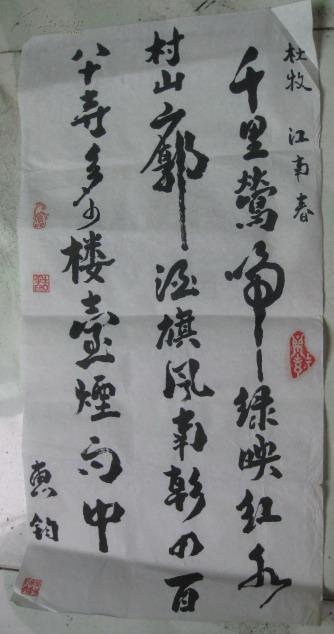 杜牧 江南春
千里鶯啼绿映红水
村山郭酒旗风南朝四百
八十寺多少楼臺煙雨中
钧